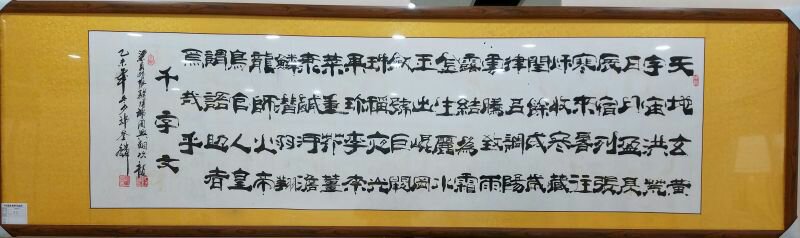 天地玄黃
宇宙洪荒
日月盈昃
辰宿列張
寒來暑往
秋收冬藏
閏餘成歲
律呂調陽
雲騰致雨
露結為霜
金生麗水
玉出崐岡
劍號巨闕
珠稱夜光
果珍李柰
菜重芥薑
海鹹河淡
鱗潛羽翔
龍師火帝
鳥官人皇
謂語助者
焉哉乎
千字文
乙未年